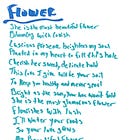 Flower
She is the most beautiful flower
Blooming with lush
Luscious presence, brightens my soul
Planted in my heart to fill it's hole
Cherish her sweet, delicate hold
This for I give all to your soil
To keep you healthy and never
Bright as the sun, you have
She is the most glamorous flower
Flourishes with lush
I'll water your roots
So your love grows